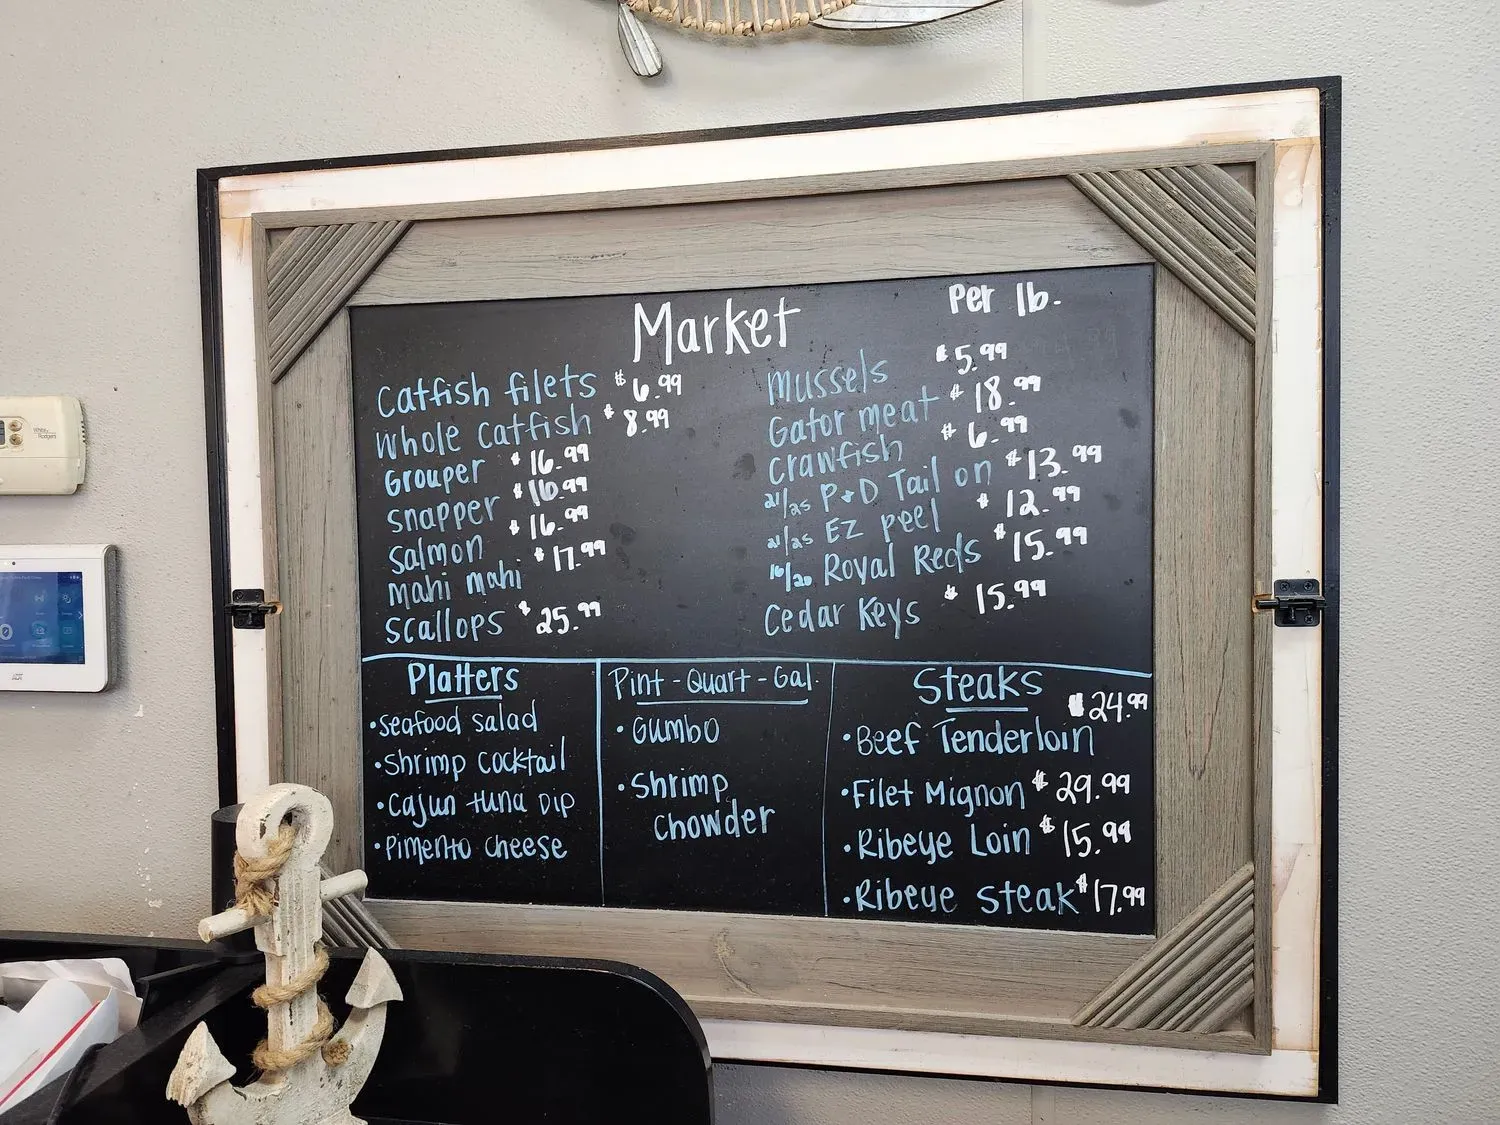 Market
Per lb.
Catfish filets $6.99
Whole Catfish $8.99
Grouper $16.99
Snapper $16.99
Salmon $16.99
Mahi Mahi $17.99
Scallops $25.99
Mussels $5.99
Gator meat $18.99
Crawfish $6.99
21/25 P+D Tail on $13.99
21/25 EZ peel $12.99
16/20 Royal Reds $15.99
Cedar Keys $15.99
Platters
•Seafood salad
•Shrimp Cocktail
•Cajun tuna Dip
•Pimento cheese
Pint-Quart-Gal.
•Gumbo
•Shrimp
Chowder
Steaks
$24.99
•Beef Tenderloin
•Filet Mignon $29.99
•Ribeye Loin $15.99
•Ribeye Steak $17.99